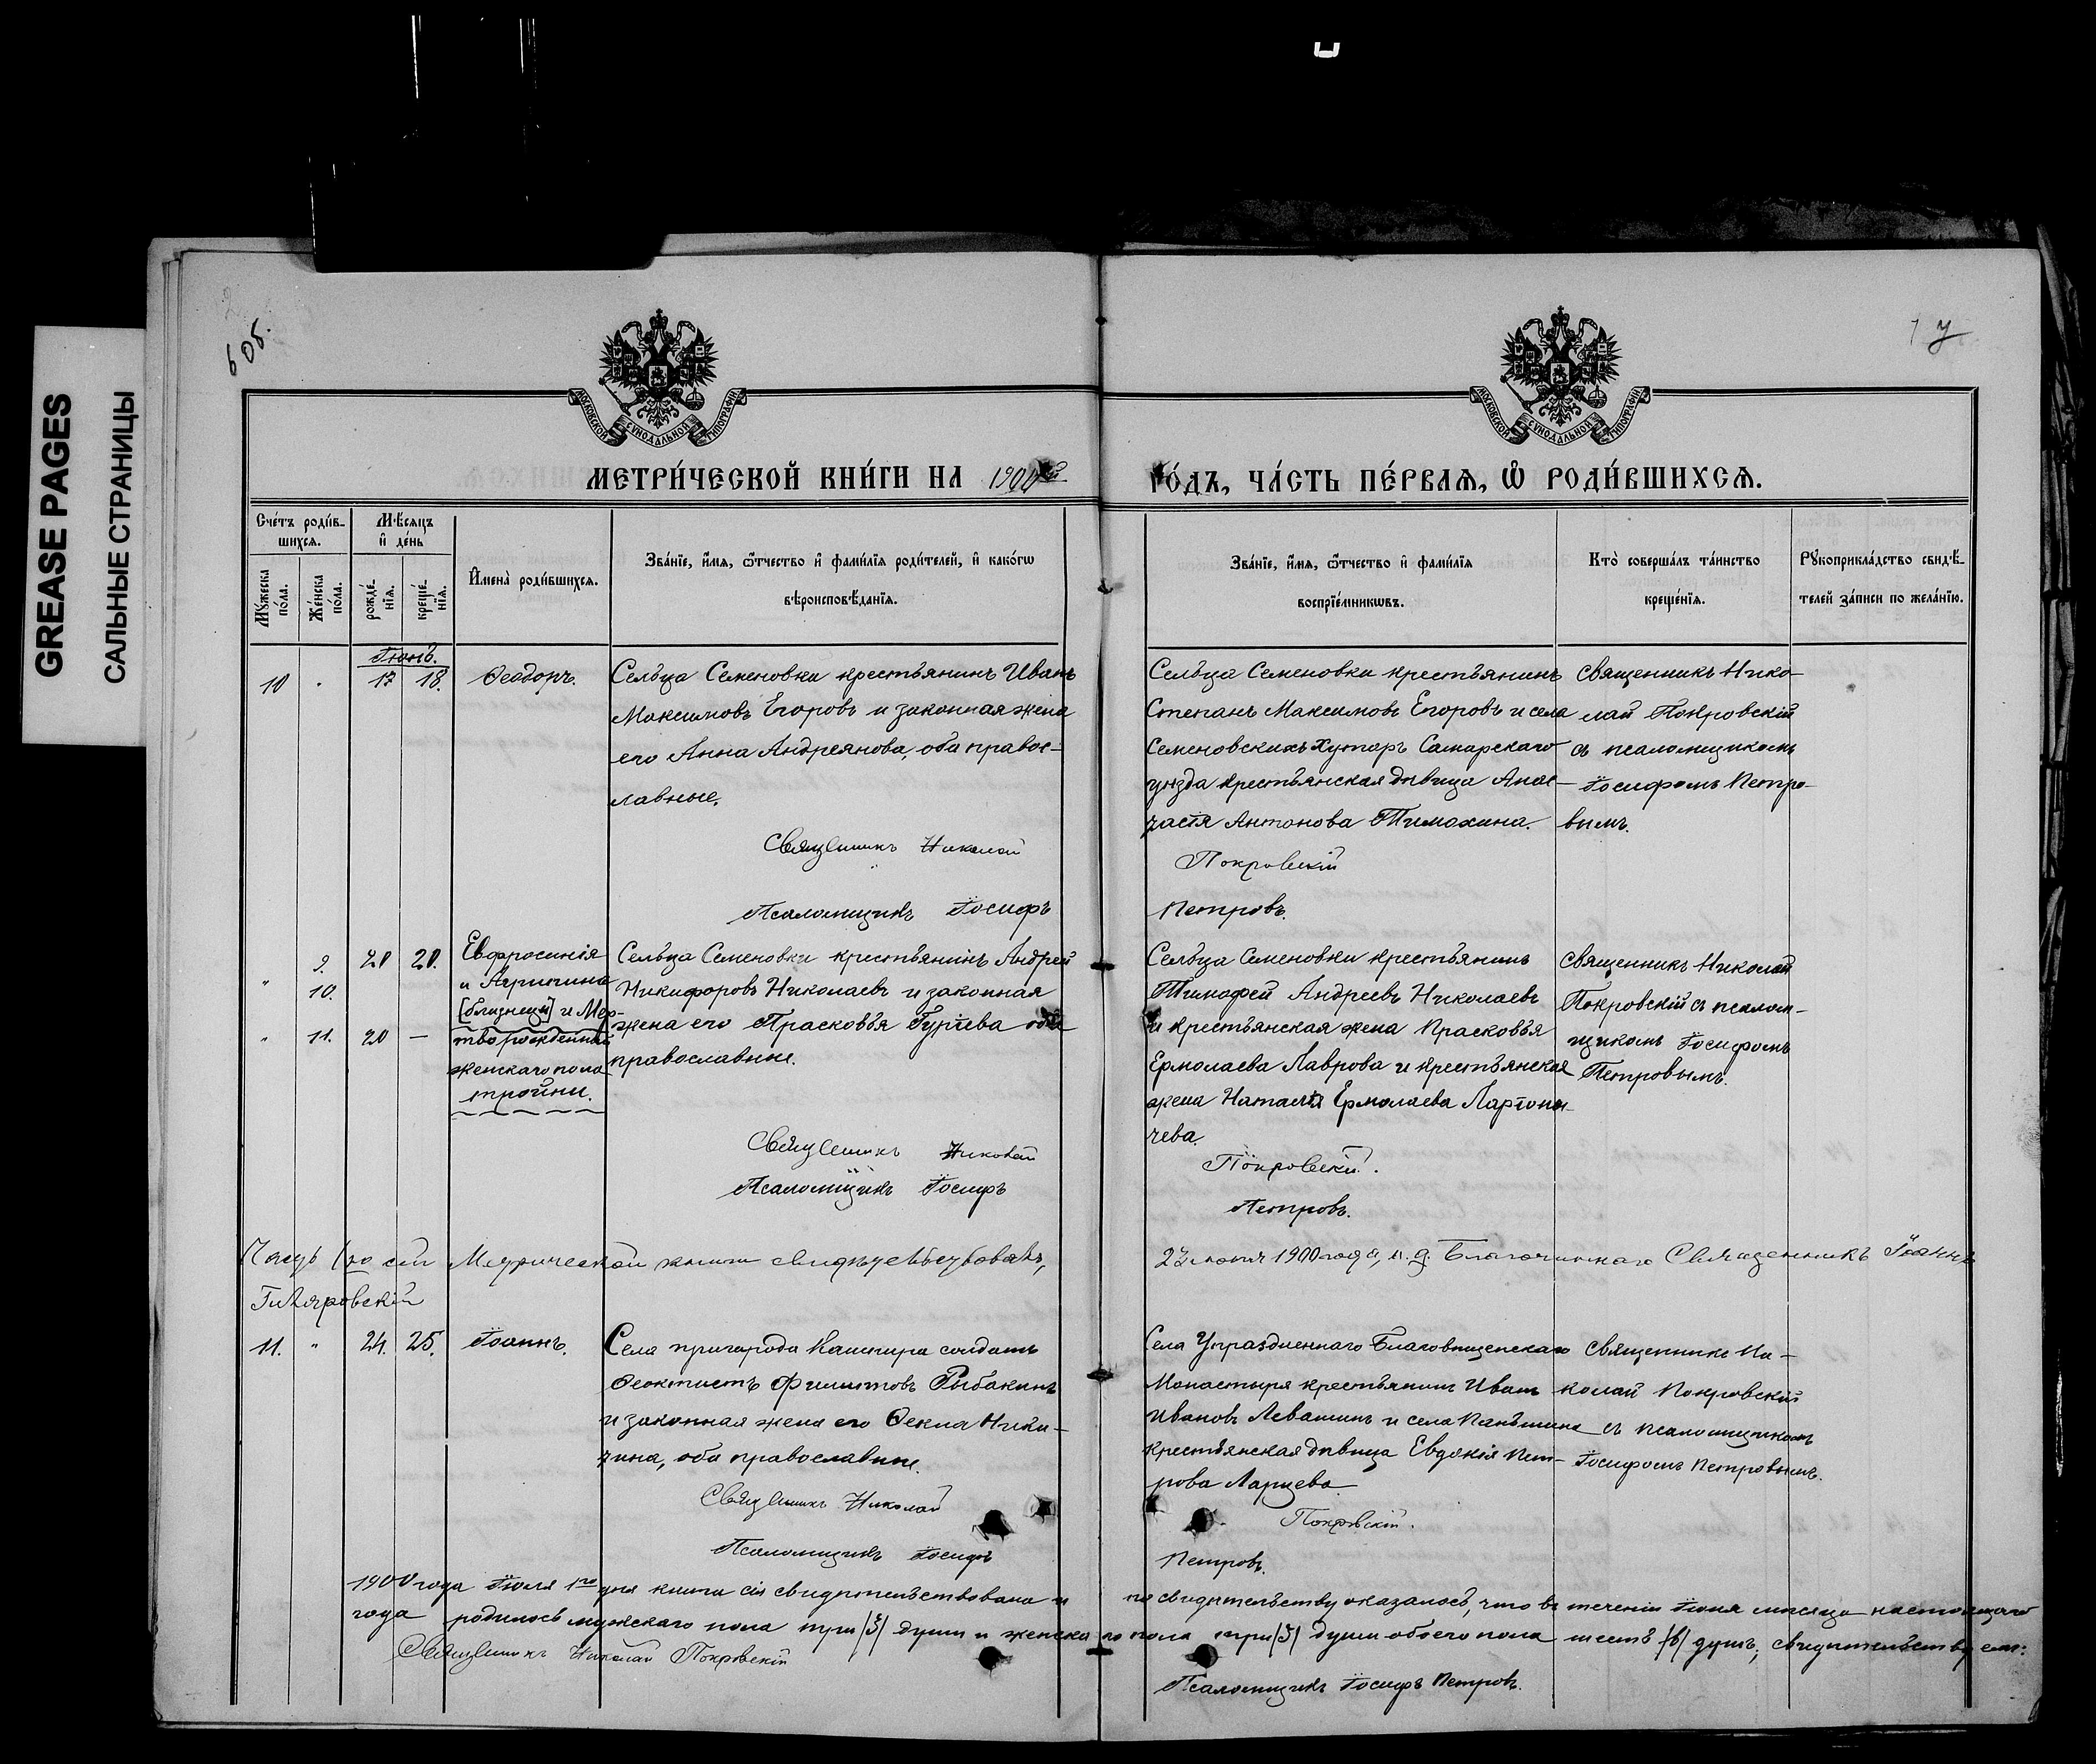 GREASE PAGES
САЛЬНЫЕ СТРАНИЦЫ
6 об.
7
МОСКОВСКОЙ СѴНОДАЛЬНОЙ ТИПОГРАФІИ
МОСКОВСКОЙ СѴНОДАЛЬНОЙ ТИПОГРАФІИ
МЕТРИ́ЧЕСКОЙ КНИ́ГИ НА 1900й
ГО́ДЪ, ЧА́СТЬ ПЕ́РВАѦ, Ѡ РОДИ́ВШИХСѦ.
Сче́тъ роди́в-
шихсѧ.
Мꙋ́жеска по́ла.
Же́нска по́ла.
Мѣ́сѧцъ и҆ де́нь
рожде́-нїѧ.
креще́-нїѧ.
И҆мена̀ роди́вшихсѧ.
Зва́нїе, и҆́мѧ, ѻ҆́тчество и҆ фами́лїѧ роди́телей, и҆ како́гѡ
вѣроисповѣ́данїѧ.
Зва́нїе, и҆́мѧ, ѻ҆́тчество и҆ фами́лїѧ
воспрїе́мникѡвъ.
Кто̀ соверша́лъ та́инство
креще́нїѧ.
Рꙋкоприкла́дство свидѣ́-
телей за́писи по жела́нїю.
Іюнь.
10 " 17 18. Ѳеодоръ.
Сельца Семеновки крестьянинъ Иванъ
Максимовъ Егоровъ и законная жена
его Анна Андреянова, оба правос-
лавные.
Священникъ Николай
Псаломщикъ Іосифъ
Сельца Семеновки крестьянинъ
Степанъ Максимовъ Егоровъ и села
Семеновскихъ Хуторъ Самарскаго
уѣзда крестьянская дѣвица Анас-
тасія Антонова Тимохина.
Покровскій
Петровъ.
Священникъ Нико-
лай Покровскій
съ псаломщикомъ
Іосифомъ Петро-
вымъ.
" 9. 20 20.
10.
" 11. 20 —
Евфросинія
и Агрипина
[близнецы] и Мер-
творожденный
женскаго пола
тройни.
Сельца Семеновки крестьянинъ Андрей
Никифоровъ Николаевъ и законная
жена его Прасковья Гурьева оба
православные.
Священникъ Николай
Псаломщикъ Іосифъ
Сельца Семеновки крестьянинъ
Тимофей Андреевъ Николаевъ
и крестьянская жена Прасковья
Ермолаева Лаврова и крестьянская
жена Наталія Ермолаева Ларіоны-
чева.
Покровскій.
Петровъ.
Священникъ Николай
Покровскій съ псалом-
щикомъ Іосифомъ
Петровымъ.
Часть 1ю сей Метрической книги свидѣтельствовалъ,
22 іюня 1900 года, и. д. Благочиннаго Священникъ Іоаннъ
Гиляровскій
11. " 24. 25. Іоаннъ.
Села пригорода Кашпира солдатъ
Ѳеоктистъ Филиповъ Рыбакинъ
и законная жена его Ѳекла Ники-
тина, оба православные.
Священникъ Николай
Псаломщикъ Іосифъ
Села Упраздненнаго Благовѣщенскаго
Монастыря крестьянинъ Иванъ
Ивановъ Левашинъ и села Паньшина
крестьянская дѣвица Евдокія Пет-
рова Ларцева.
Покровскій.
Петровъ.
Священникъ Ни-
колай Покровскій
съ псаломщикомъ
Іосифомъ Петровымъ.
1900 года Іюля 1го дня книга сія свидѣтельствована и по свидѣтельству оказалось, что въ теченіи Іюня мѣсяца настоящаго
года родилось мужскаго пола три /3/ души и женскаго пола три /3/ души обоего пола шесть /6/ душъ; свидѣтельствуемъ:
Священникъ Николай Покровскій
Псаломщикъ Іосифъ Петровъ.